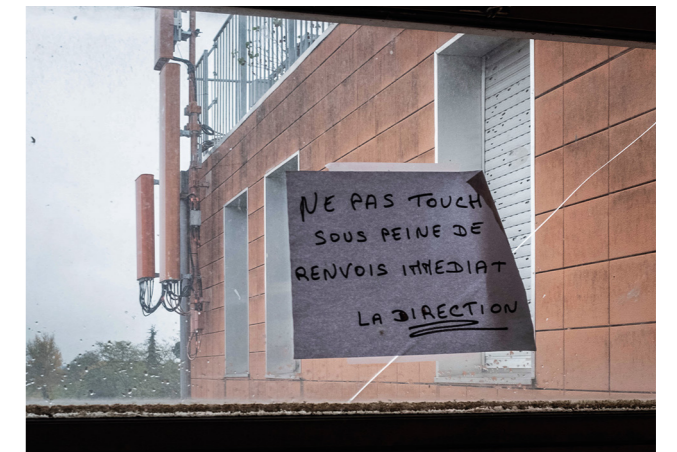 NE PAS TOUCH
SOUS PEINE DE
RENVOIS IMMEDIAT
LA DIRECTION